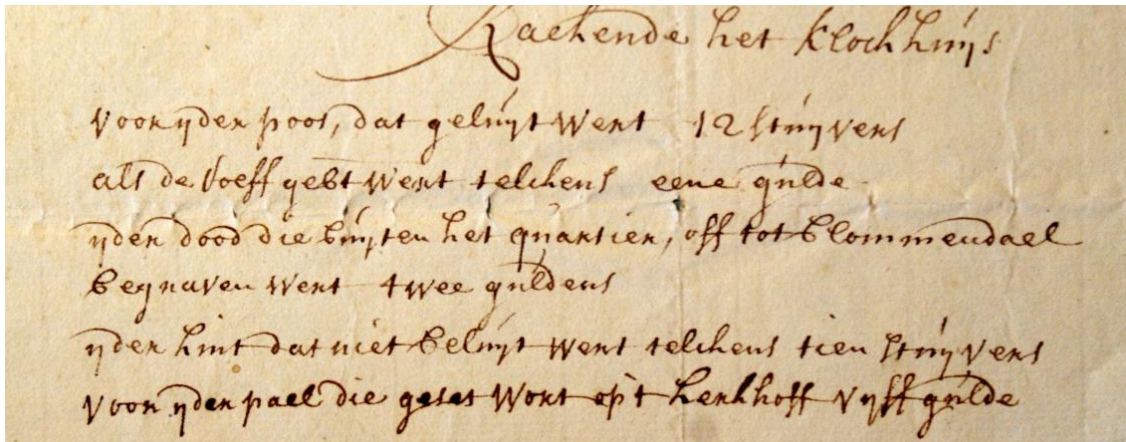 Rackende het klockhuijs
voor yder poos, dat geluyt wert 12 stuyvers
als de boeff gebt wert telckens eene gulde
yder dood die buyten het quartier, off tot blommendael
begraven wert twee guldens
yder kint dat niet beluyt wert telckens tien stuyvers
voor yder pael die geset wort op't kerkhoff vyff gulde